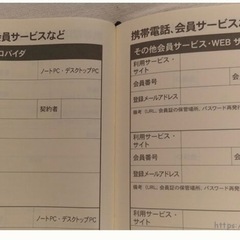 会員サービスなど
ロバイダ
ノートPC・デスクトップPC
契約者
ノートPC・デスクトップPC
携帯電話、会員サービス
その他会員サービス・WEB サ
利用サービス・
サイト
会員番号
登録メールアドレス
備考（URL、会員証の保管場所、パスワード再発
利用サービス・
サイト
会員番号
登録メールアドレス
備考（URL、会員証の保管場所、パスワード再発
利用サービス・
サイト